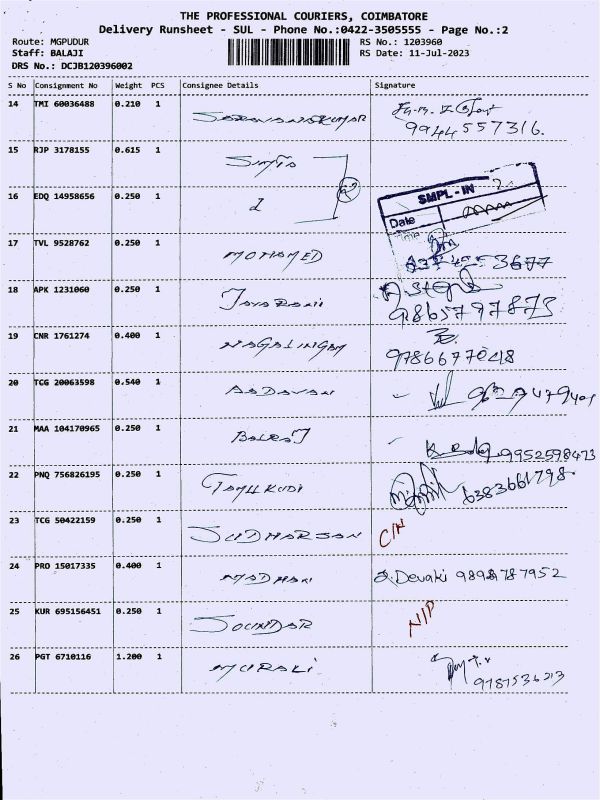 THE PROFESSIONAL COURIERS, COIMBATORE
Delivery Runsheet - SUL - Phone No.:0422-3505555 - Page No.:2
Route: MGPUDUR RS No.: 1203960
Staff: BALAJI RS Date: 11-Jul-2023
DRS No.: DCJB120396002
S No Consignment No Weight PCS Consignee Details Signature
14 TMI 60036488 0.210 1 SARAVANAKUMAR
9944557316.
15 RJP 3178155 0.615 1
16 EDQ 14958656 0.250 1 SMPL-IN
Date
17 TVL 9528762 0.250 1 MOHAMED
18 APK 1231060 0.250 1
9865797873
19 CNR 1761274 0.400 1 NAGALINGAM
9786677
20 TCG 20063598 0.540 1 AADAVAN
21 MAA 104170965 0.250 1 BALAJI 9952598473
22 PNQ 756826195 0.250 1 TAMILKUDI 6383661798
23 TCG 50422159 0.250 1 SUDHARSAN C/N
24 PRO 15017335 0.400 1 MADHAN Devaki
25 KUR 695156451 0.250 1 SOUNDAR
26 PGT 6710116 1.200 1 MURALI
9787536213